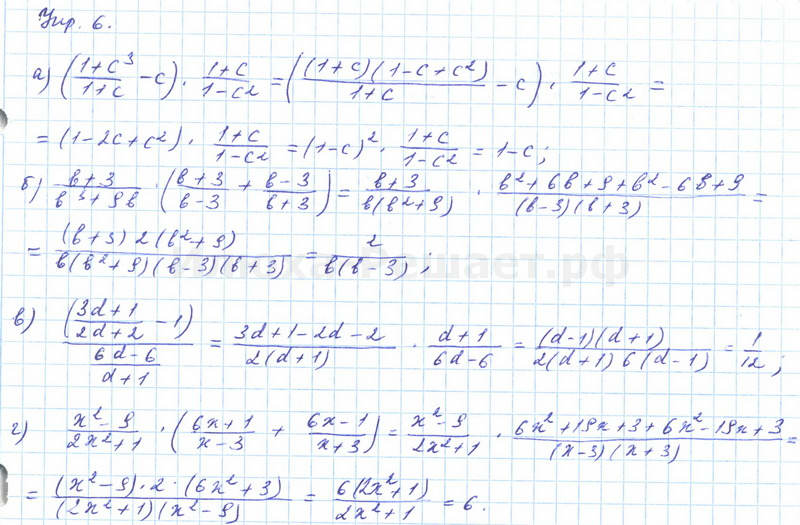 Упр. 6.
а) ((1+c^3)/(1+c) - c) · (1+c)/(1-c2) = ((1+c)(1-c+c^2)/(1+c) - c) · (1+c)/(1-c2) =
= (1-2c+c^2) · (1+c)/(1-c2) = (1-c)^2 · (1+c)/(1-c2) = 1-c;
б) (в+3)/(в^3+9в) · ((в+3)/(в-3) + (в-3)/(в+3)) = (в+3)/(в(в^2+9)) · (в^2+6в+9+в^2-6в+9)/((в-3)(в+3)) =
= (в+3)2(в^2+9)/(в(в^2+9)(в-3)(в+3)) = 2/(в(в-3));
в) ((3d+1)/(2d+2) - 1)/((6d-6)/(d+1)) = (3d+1-2d-2)/(2(d+1)) · (d+1)/(6d-6) = (d-1)(d+1)/(2(d+1)6(d-1)) = 1/12;
г) (x^2-9)/(2x^2+1) · ((6x+1)/(x-3) + (6x-1)/(x+3)) = (x^2-9)/(2x^2+1) · (6x^2+19x+3+6x^2-19x+3)/((x-3)(x+3)) =
= (x^2-9)·2·(6x^2+3)/((2x^2+1)(x^2-9)) = 6(2x^2+1)/(2x^2+1) = 6.